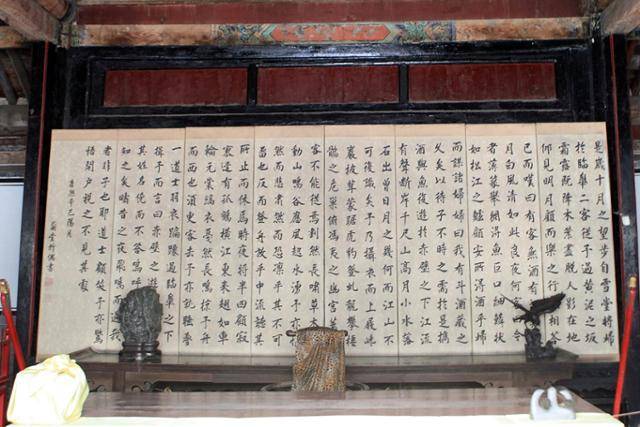 是歲十月之望步自雪堂將歸
於臨皋二客從予過黃泥之坂
霜露既降木葉盡脫人影在地
仰見明月顧而樂之行歌相答
已而嘆曰有客無酒有酒
月白風清如此良夜何客曰今
者薄暮舉網得魚巨口細鱗狀
如松江之鱸顧安所得酒乎歸
而謀諸婦婦曰我有斗酒藏之
久矣以待子不時之需於是攜
酒與魚復遊於赤壁之下江流
有聲斷岸千尺山高月小水落
石出曾日月之幾何而江山不
可復識矣予乃攝衣而上履巉
巖披蒙茸踞虎豹登虬龍攀棲
鶻之危巢俯馮夷之幽宮蓋
客不能從焉劃然長嘯草木
動山鳴谷應風起水湧予亦
然而悲肅然而恐凜乎其不可
留也反而登舟放乎中流聽其
所止而休焉時夜將半四顧寂
寥適有孤鶴橫江東來翅如車
輪玄裳縞衣戛然長鳴掠予舟
而西也須臾客去予亦就睡夢
一道士羽衣蹁躚過臨皋之下
揖予而言曰赤壁之遊
其姓名俛而不答嗚呼
知之矣疇昔之夜飛鳴而過我
者非子也耶道士顧笑予亦驚
悟開戶視之不見其處